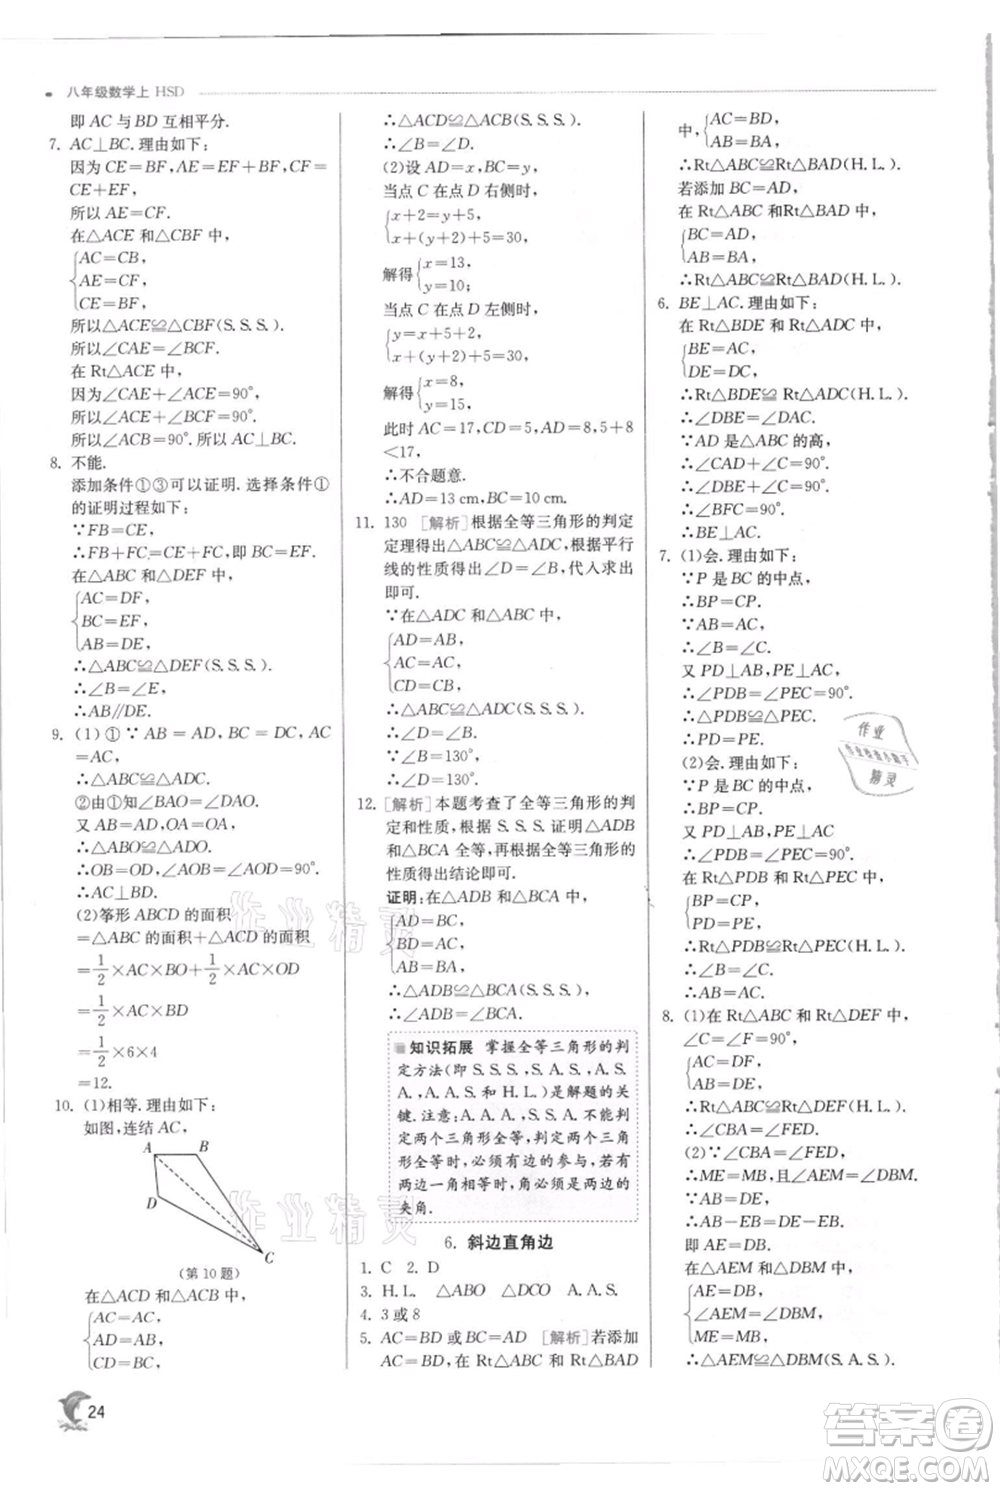 八年级数学上 HSD
即 AC 与 BD 互相平分.
7. AC⊥BC.理由如下:
因为 CE=BF,AE=CF-EF,BF=
CE+EF,
所以 AE=CF.
在△ACE 和△CBF 中,
AC=CB,
AE=CF,
CE=BF,
所以△ACE≌△CBF(S.S.S.).
所以∠CAE=∠BCF.
在 Rt△ACE 中,
因为∠CAE+∠ACE=90°,
所以∠BCF+∠ACF=90°.
所以∠ACB=90°.所以 AC⊥BC.
8. 不能.
添加条件①③可以证明.选择条件①
的证明过程如下:
∵FB=CE,
∴FB+FC=CE+FC,即 BC=EF.
在△ABC 和△DEF 中,
AC=DF,
BC=EF,
AB=DE,
∴△ABC≌△DEF(S.S.S.).
∴∠B=∠E,
∴AB∥DE.
9. (1) ① ∵ AB = AD, BC = DC, AC
=AC,
∴△ABC≌△ADC.
②由①知∠BAO=∠DAO.
又 AB=AD,OA=OA,
∴△ABO≌△ADO.
∴OB=OD,∠AOB=∠AOD=90°.
∴AC⊥BD.
(2)筝形 ABCD 的面积
=△ABC 的面积+△ACD 的面积
=1/2×AC×BO+1/2×AC×OD
=1/2×AC×BD
=1/2×6×4
=12.
10. (1)相等.理由如下:
如图,连结 AC,
A B
D
C
(第 10 题)
在△ACD 和△ACB 中,
AC=AC,
AD=AB,
CD=BC,
∴△ACD≌△ACB(S.S.S.).
∴∠B=∠D.
(2)设 AD=x,BC=y,
当点 C 在点 D 右侧时,
x+2=y+5,
x+(y+2)+5=30,
解得 x=13,
y=10;
当点 C 在点 D 左侧时,
y=x+5+2,
x+(y+2)+5=30,
解得 x=8,
y=15,
此时 AC=17,CD=5,AD=8,5+8
<17,
∴不合题意.
∴AD=13 cm,BC=10 cm.
11. 130 [解析]根据全等三角形的判定
定理得出△ABC≌△ADC,根据平行
线的性质得出∠D=∠B,代入求出
即可.
∵在△ADC 和△ABC 中,
AD=AB,
AC=AC,
CD=CB,
∴△ABC≌△ADC(S.S.S.).
∴∠D=∠B.
∵∠B=130°,
∴∠D=130°.
12. [解析]本题考查了全等三角形的判
定和性质,根据 S.S.S.证明△ADB
和△BCA 全等,再根据全等三角形的
性质得出结论即可.
证明:在△ADB 和△BCA 中,
AD=BC,
BD=AC,
AB=BA,
∴△ADB≌△BCA(S.S.S.).
∴∠ADB=∠BCA.
知识拓展 掌握全等三角形的判
定方法(即 S.S.S.,S.A.S.,A.S.
A.,A.A.S.和 H.L.)是解题的关
键.注意:A.A.A.,S.S.A.不能判
定两个三角形全等,判定两个三角
形全等时,必须有边的参与,若有
两边一角相等时,角必须是两边的
夹角.
6. 斜边直角边
1. C 2. D
3. H.L. △ABO △DCO A.A.S.
4. 3 或 8
5. AC=BD 或 BC=AD [解析]若添加
AC=BD,在 Rt△ABC 和 Rt△BAD
中, AC=BD,
AB=BA,
∴Rt△ABC≌Rt△BAD(H.L.).
若添加 BC=AD,
在 Rt△ABC 和 Rt△BAD 中,
BC=AD,
AB=BA,
∴Rt△ABC≌Rt△BAD(H.L.).
6. BE⊥AC.理由如下:
在 Rt△BDE 和 Rt△ADC 中,
BE=AC,
DE=DC,
∴Rt△BDE≌Rt△ADC(H.L.).
∴∠DBE=∠DAC.
∵AD 是△ABC 的高,
∴∠CAD+∠C=90°.
∴∠DBE+∠C=90°.
∴∠BFC=90°.
∴BE⊥AC.
7. (1)会.理由如下:
∵P 是 BC 的中点,
∴BP=CP.
∵AB=AC,
∴∠B=∠C.
又 PD⊥AB,PE⊥AC,
∴∠PDB=∠PEC=90°.
∴△PDB≌△PEC.
∴PD=PE.
(2)会.理由如下:
∵P 是 BC 的中点,
∴BP=CP.
又 PD⊥AB,PE⊥AC
∴∠PDB=∠PEC=90°.
在 Rt△PDB 和 Rt△PEC 中,
BP=CP,
PD=PE,
∴Rt△PDB≌Rt△PEC(H.L.).
∴∠B=∠C.
∴AB=AC.
8. (1)在 Rt△ABC 和 Rt△DEF 中,
∠C=∠F=90°,
AC=DF,
AB=DE,
∴Rt△ABC≌Rt△DEF(H.L.).
∴∠CBA=∠FED.
(2)∵∠CBA=∠FED,
∴ME=MB,且∠AEM=∠DBM.
∵AB=DE,
∴AB-EB=DE-EB.
即 AE=DB.
在△AEM 和△DBM 中,
AE=DB,
∠AEM=∠DBM,
ME=MB,
∴△AEM≌△DBM(S.A.S.).
24
作业精灵
作业精灵
作业
精灵
答案圈
MXQE.COM